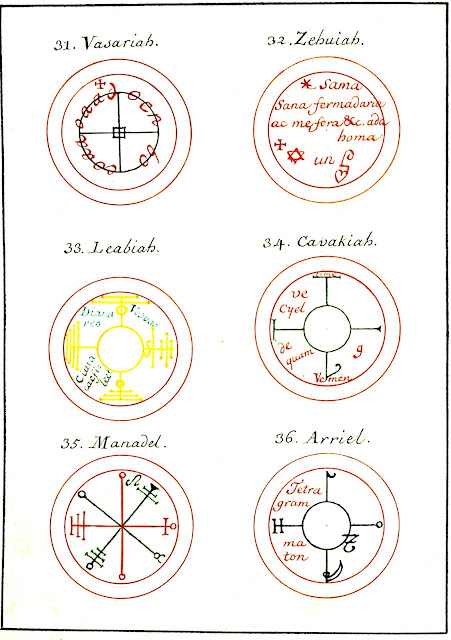 31. Vasariah.
32. Zehuiah.
Sama
Sana fermadaria
ac mesfera &c. ada
homa
un
33. Leabiah.
Diana
reo
34. Cavakiah.
ve
Cyel
de
quam
g
Vemen
35. Manadel.
36. Arriel.
Tetra
gram
ma
ton